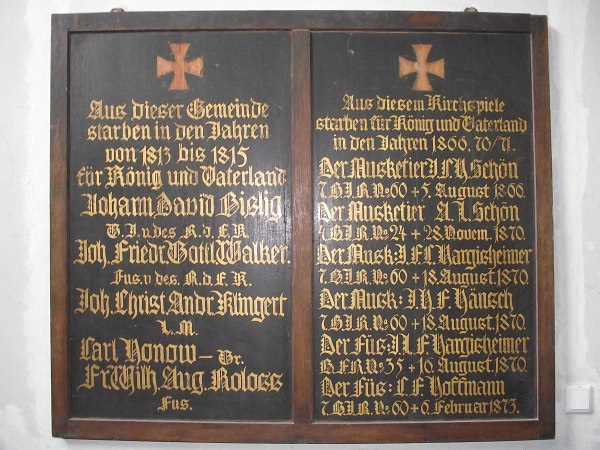 Aus dieser Gemeinde
starben in den Jahren
von 1813 bis 1815
für König und Vaterland
Johann David Gislig
G. J. v. des. R. d. F. K.
Joh. Friedr. Gottl. Walker.
Fus. v. des. R. d. F. K.
Joh. Christ Andr Klingert
L. M.
Carl Nonow – Gr.
Fr Wilh. Aug. Roloss
Fus.
Aus diesem Kirchspiele
starben für König und Vaterland
in den Jahren 1866, 70/71.
Der Musketier J F H Schön
7. B. I R. No 60 + 5. August 1866.
Der Musketier A. L. Schön
I R. No 24 + 28. Novem. 1870.
Der Musk: J F L Hargisheimer
7. B. I R. No 60 + 18. August. 1870.
Der Musk: J H F Hänsch
7. B. I R. No 60 + 18. August. 1870.
Der Füs: F. Hargisheimer
F. R. No 35 + 16. August. 1870.
Der Füs: L. F. Hoffmann
7. B. I R. No 60 + 6. Februar 1873.